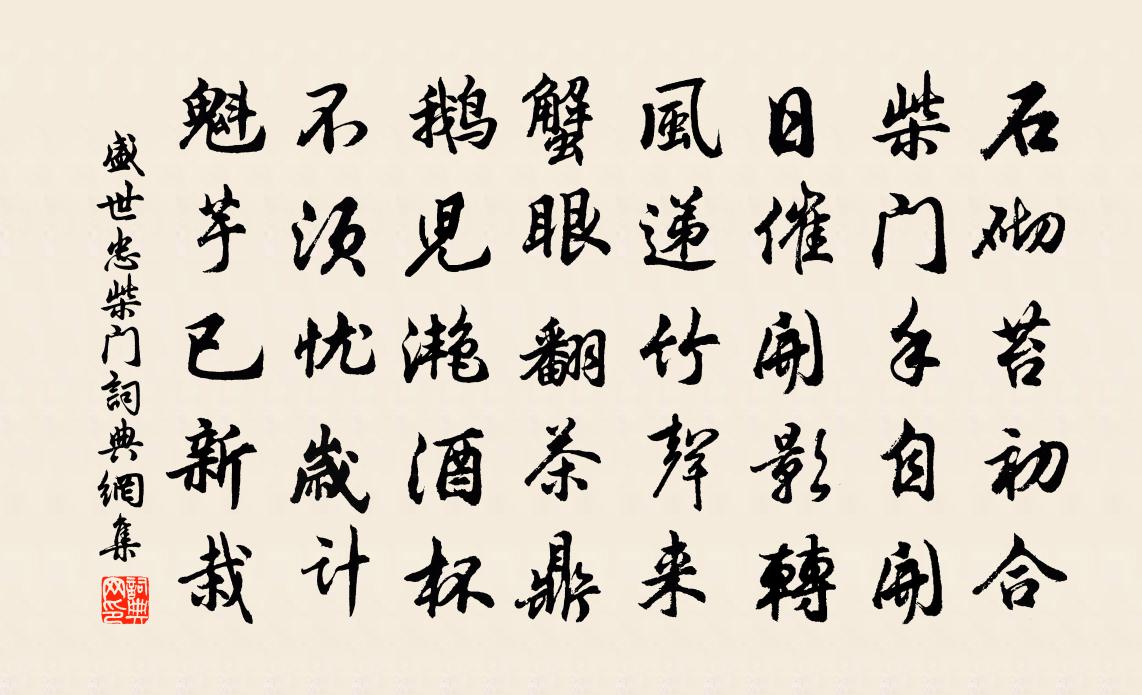 石砌苔初合
柴门手自開
日催開影轉
風递竹聲来
蟹眼翻茶鼎
鵝児滟酒杯
不须忧歳计
魁芋已新栽
盛世忠柴门詞典網集
詞典网印